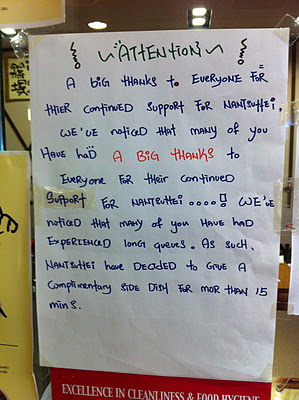 ATTENTION
A BIG THANKS to EVERYONE FOR
THIER CONTINUED SUPPORT FOR NANTSUTTEI.
WE'VE NOTICED THAT MANY OF YOU
HAVE HAD A BIG THANKS to
EVERYONE FOR THEIR CONTINUED
SUPPORT FOR NANTSUTTEI ....!! WE'VE
NOTICED THAT MANY OF YOU HAVE HAD
EXPERIENCED LONG QUEUES. AS SUCH,
NANTSUTTEI HAVE DECIDED to GIVE A
COMPLIMENTARY SIDE DISH FOR MOR THAN 15
MINS.
EXCELLENCE IN CLEANLINESS & FOOD HYGIENE